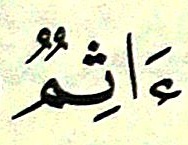 ءَاثِمٌ